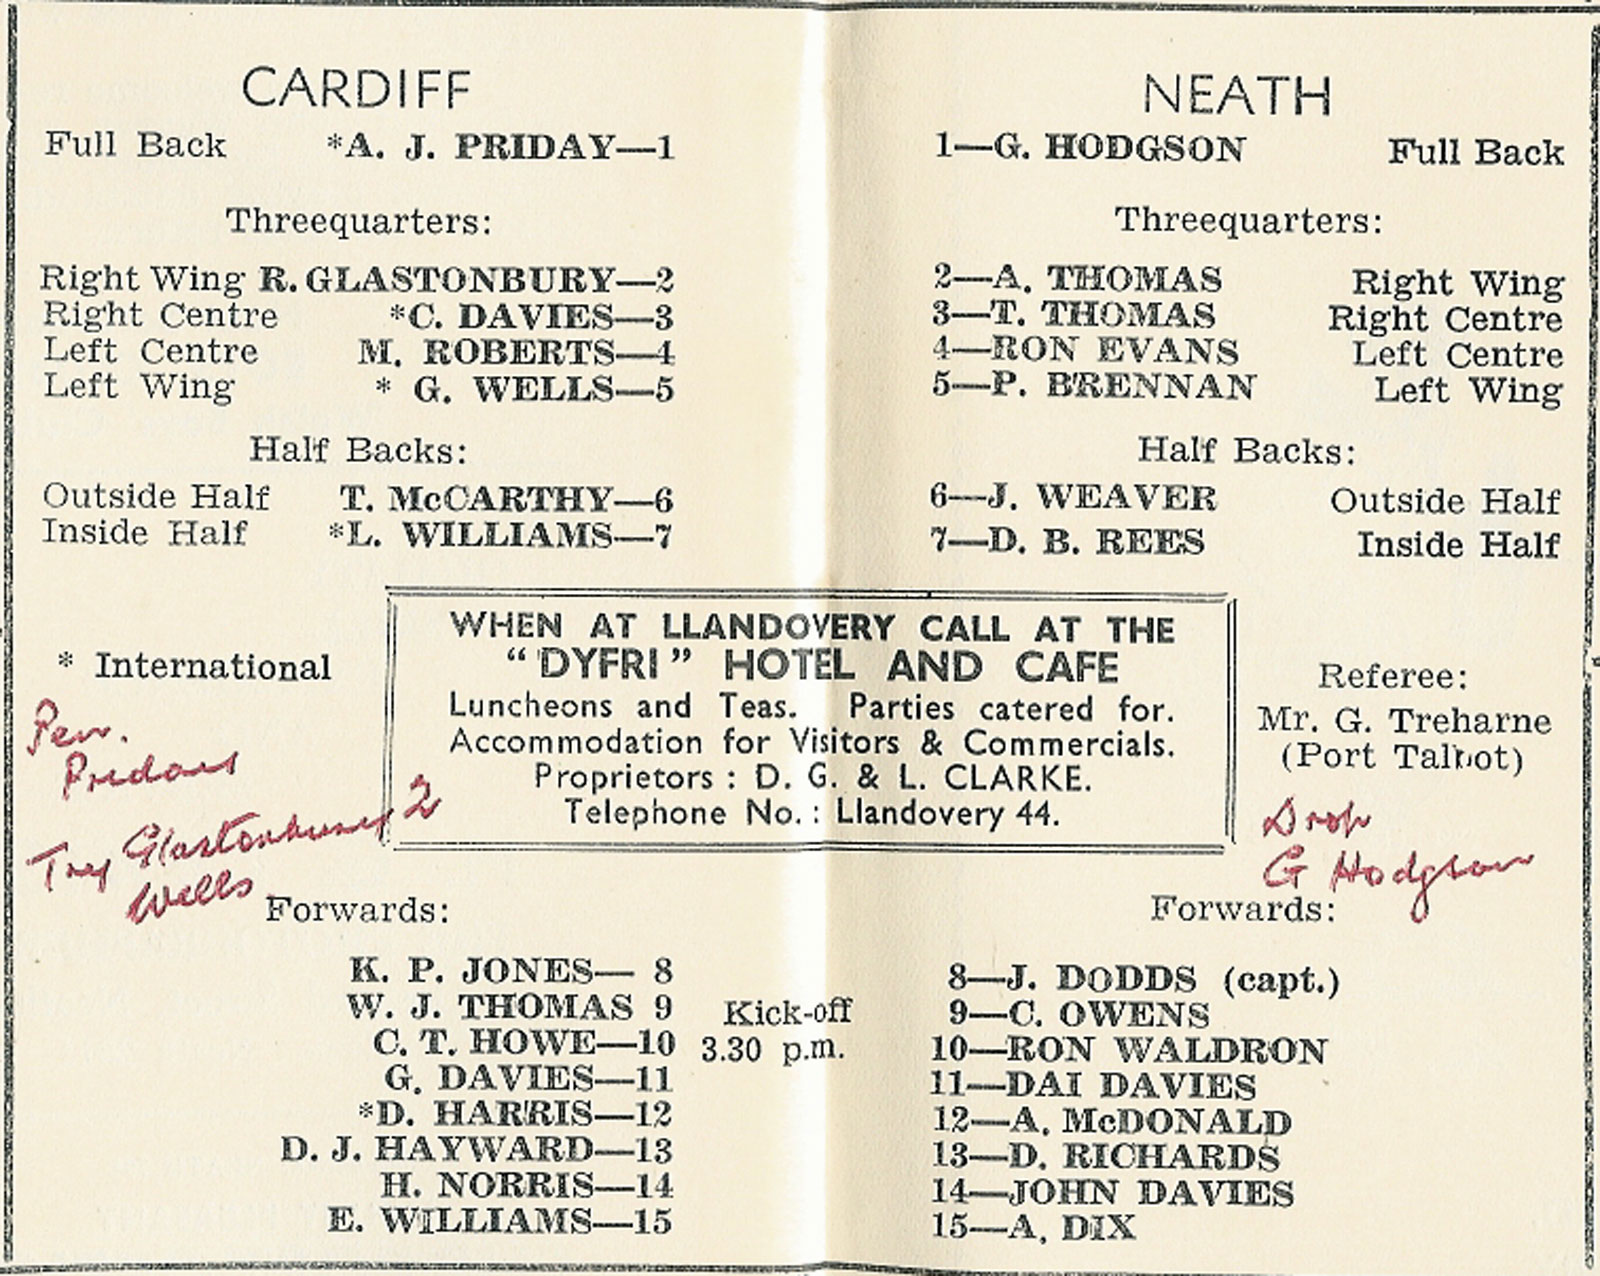 CARDIFF
Full Back *A. J. PRIDAY—1
Threequarters:
Right Wing R. GLASTONBURY—2
Right Centre *C. DAVIES—3
Left Centre M. ROBERTS—4
Left Wing * G. WELLS—5
Half Backs:
Outside Half T. McCARTHY—6
Inside Half *L. WILLIAMS—7
* International
Pen.
Priday
Try Glastonbury 2
Wells
Forwards:
K. P. JONES— 8
W. J. THOMAS 9
C. T. HOWE—10
G. DAVIES—11
*D. HARRIS—12
D. J. HAYWARD—13
H. NORRIS—14
E. WILLIAMS—15
WHEN AT LLANDOVERY CALL AT THE
“DYFRI” HOTEL AND CAFE
Luncheons and Teas. Parties catered for.
Accommodation for Visitors & Commercials.
Proprietors : D. G. & L. CLARKE.
Telephone No. : Llandovery 44.
Kick-off
3.30 p.m.
NEATH
1—G. HODGSON Full Back
Threequarters:
2—A. THOMAS Right Wing
3—T. THOMAS Right Centre
4—RON EVANS Left Centre
5—P. BRENNAN Left Wing
Half Backs:
6—J. WEAVER Outside Half
7—D. B. REES Inside Half
Referee:
Mr. G. Treharne
(Port Talbot)
Drop
G Hodgson
Forwards:
8—J. DODDS (capt.)
9—C. OWENS
10—RON WALDRON
11—DAI DAVIES
12—A. McDONALD
13—D. RICHARDS
14—JOHN DAVIES
15—A. DIX